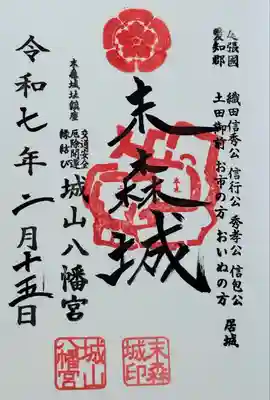 尾張國
愛知郡
織田信秀公 信行公 秀孝公 信包公
土田御前 お市の方 おいぬの方 居城
末森城
末森城址鎮座
交通安全
厄除開運
縁結び
城山八幡宮
令和七年二月十五日
末森
城印
城山
八幡宮